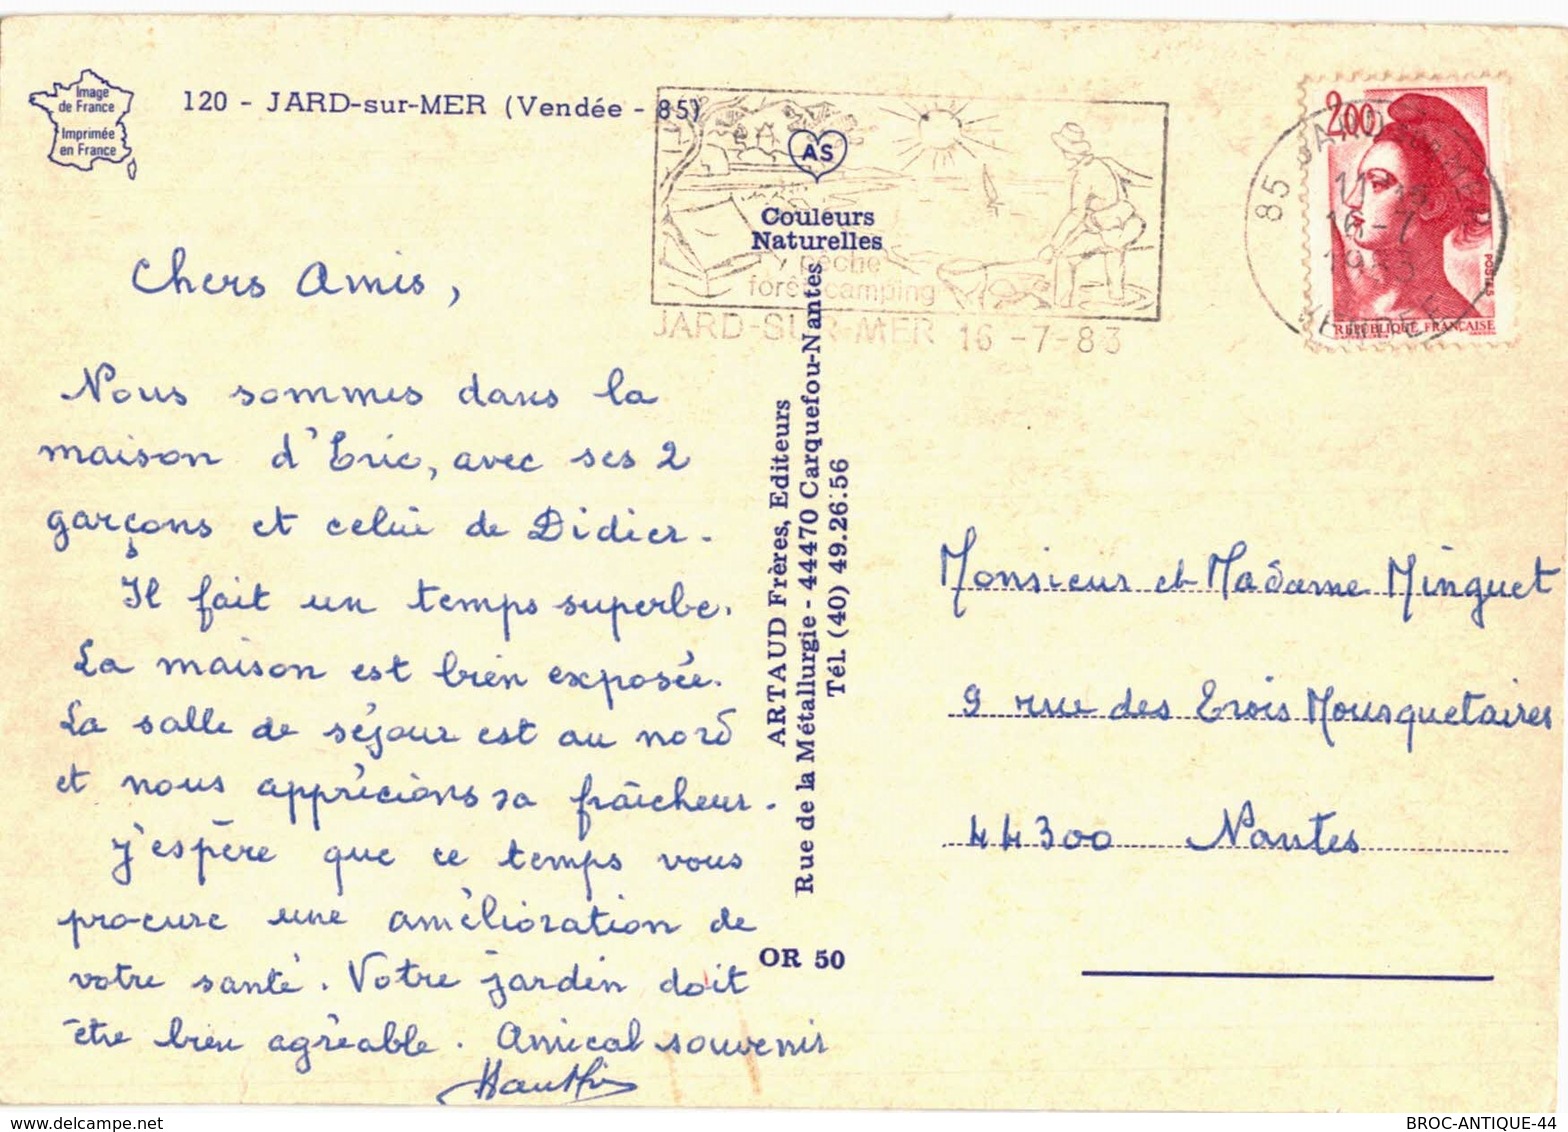 Image
de France
Imprimée
en France
120 - JARD-sur-MER (Vendée - 85)
AS
Couleurs
Naturelles
pêche
forêt camping
JARD-SUR-MER 16 -7-83
2,00
85 JARD S/MER
16-7
1983
VENDEE
POSTES
REPUBLIQUE FRANÇAISE
Chers Amis,
Nous sommes dans la
maison d'Eric, avec ses 2
garçons et celui de Didier.
Il fait un temps superbe.
La maison est bien exposée.
La salle de séjour est au nord
et nous apprécions sa fraîcheur.
J'espère que ce temps vous
procure une amélioration de
votre santé. Votre jardin doit
être bien agréable. Amical souvenir
ARTAUD Frères, Editeurs
Rue de la Métallurgie - 44470 Carquefou-Nantes
Tél. (40) 49.26.56
OR 50
Monsieur et Madame Minguet
9 rue des Trois Mousquetaires
44300 Nantes
BROC-ANTIQUE-44
delcampe.net